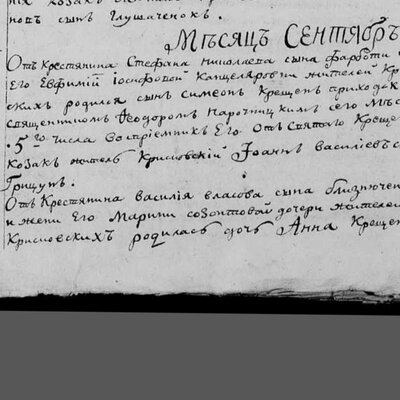 новъ сынъ Глушаченокъ.
Мѣсяцъ Сентябръ
Отъ крестянина Стефана Николаева сына Фарботи
Его Евфимїи Іосифовой Канцеляровни жителей Кр
скихъ родился сынъ Симеонъ Крещенъ приходск
священникомъ Ѳеодоромъ Нарочницкимъ сего мѣс
5го числа воспріемникъ Его отъ святаго Креще
козакъ житель Крисковскій Іоаннъ Василіевъ с
Грицунъ.
Отъ Крестянина василїя власова сына близнюче
и жени Его Марини созонтовой дочери жителей
Крисковскихъ родилась дочь Анна Креще